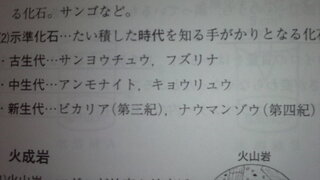 る化石。サンゴなど。
(2)示準化石…たい積した時代を知る手がかりとなる化石
・古生代…サンヨウチュウ，フズリナ
・中生代…アンモナイト，キョウリュウ
・新生代…ビカリア(第三紀)，ナウマンゾウ(第四紀)
火成岩
火山岩